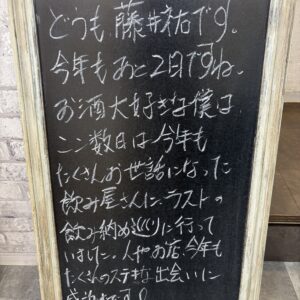 どうも藤井祐です。
今年もあと2日ですね。
お酒大好きな僕は、
ここ数日は今年も
たくさんお世話になった
飲み屋さんに、ラストの
飲み納め巡りに行って
いました。人やお店、今年も
たくさんのステキな出会いに
感謝です！